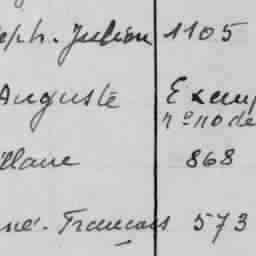 eph. Julien 1105
Auguste Exemp
n° 110 de
llane 868
né. Francois 573